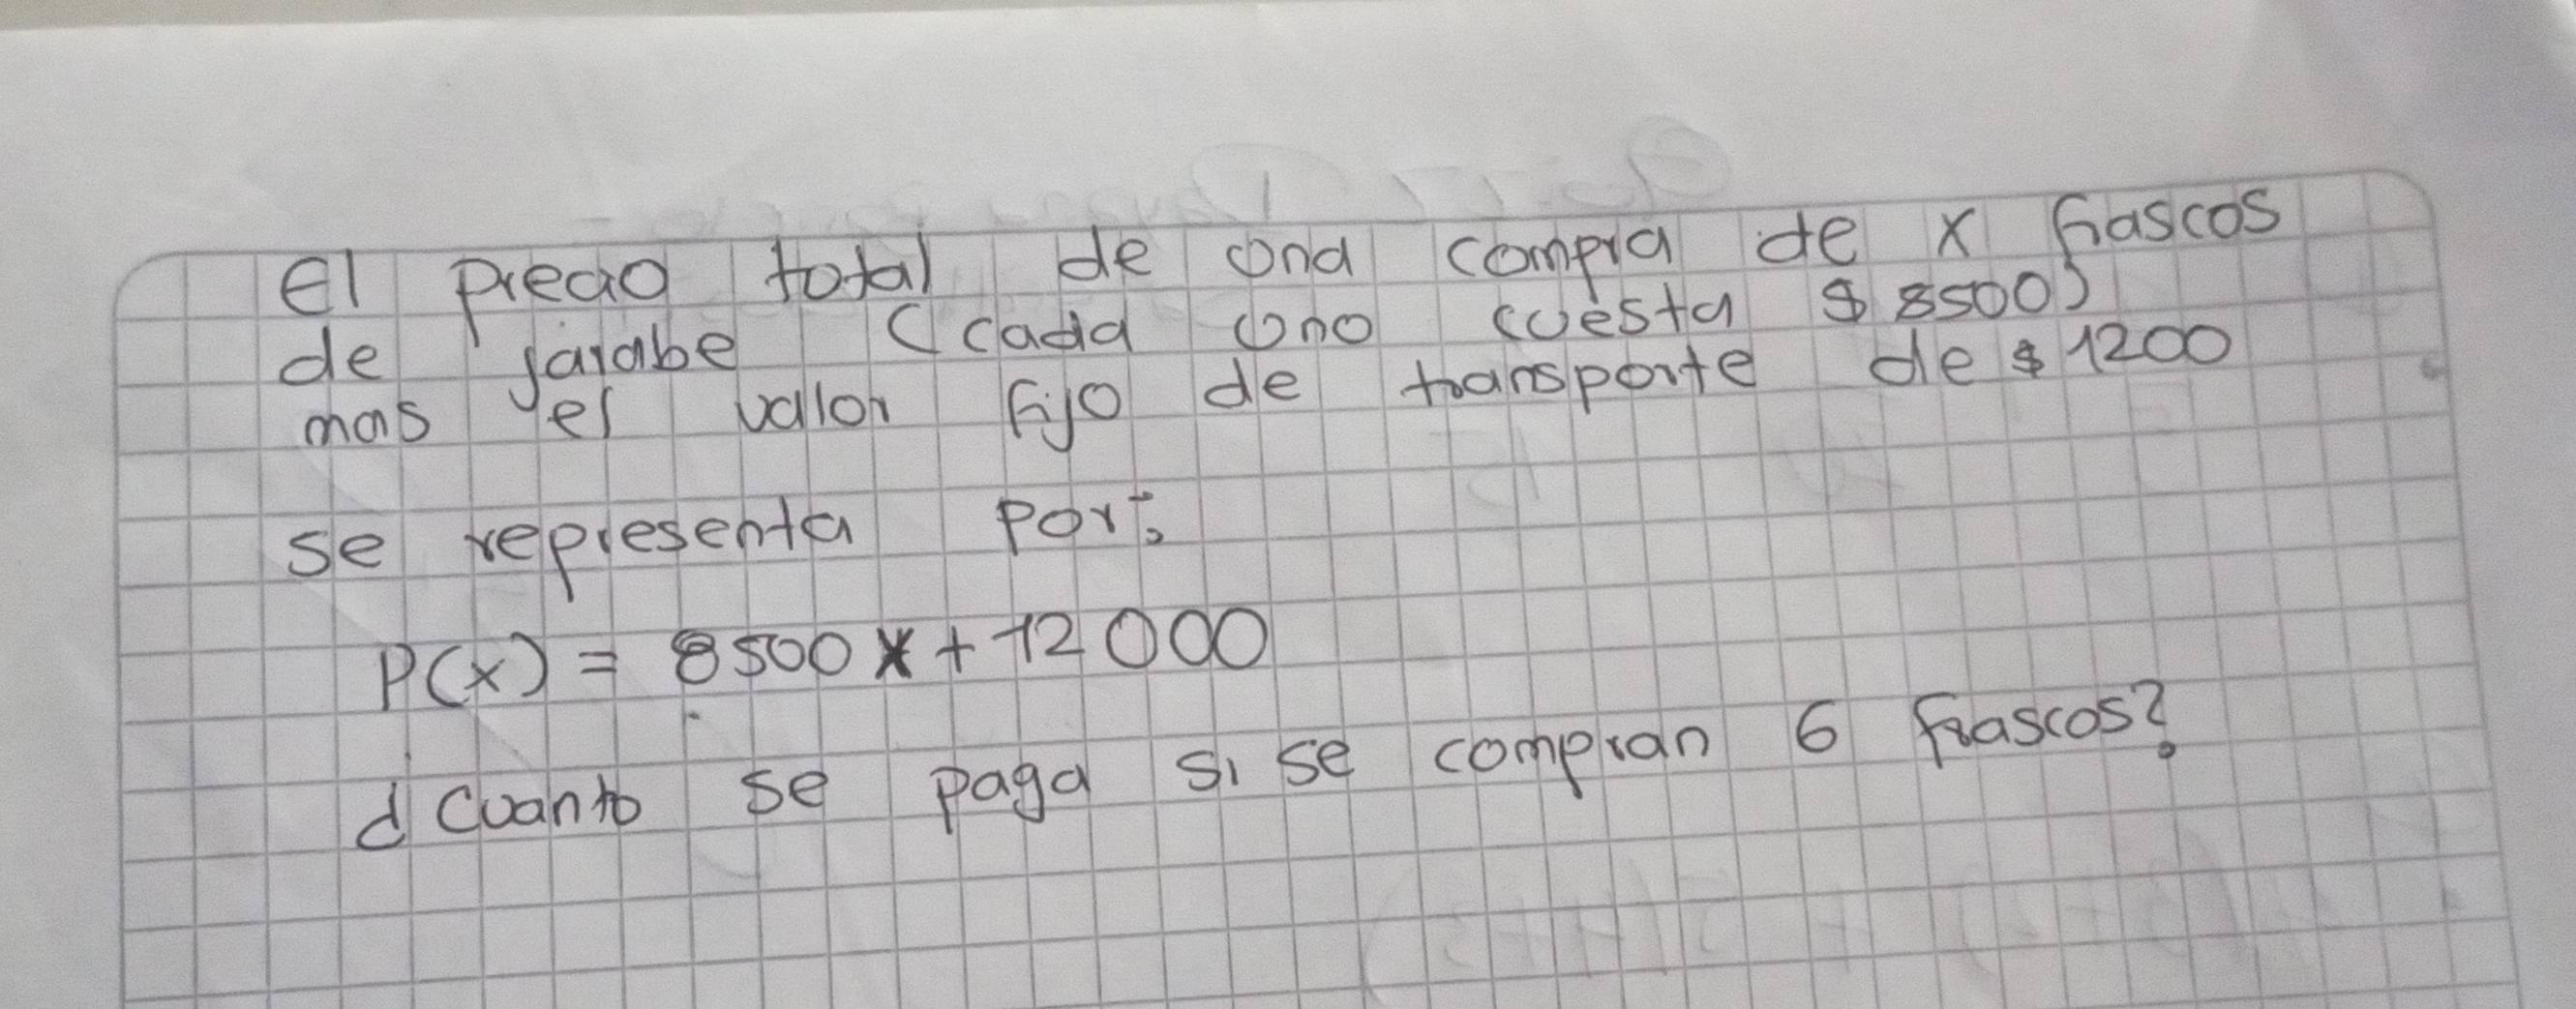 El precio total de una compra de x frascos
de jarabe (cada uno cuesta $ 8500)
mas el valor fijo de transporte de $ 1200
se representa por:
P(x) = 8500x + 12000
¿Cuanto se paga si se compran 6 frascos?